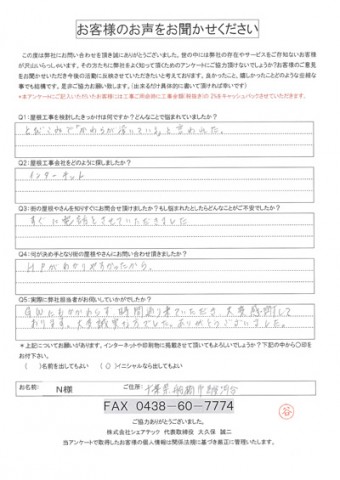 お客様のお声をお聞かせください
この度は弊社にお問い合わせを頂き誠にありがとうございました。世の中には弊社の存在やサービスをご存知ないお客様
が沢山いらっしゃいます。是非、その方たちに弊社をよく知って頂くためのアンケートにご協力頂けないでしょうか?お客様のご意見
をお聞かせいただき今後の活動に反映させていただきたいと考えております。良かったこと、嬉しかったことなどの些細な
事でも結構です。是非ご協力ください。(出来るだけ具体的に書いて頂ければ幸いです)
*本アンケートにご記入いただいたお客様には工事ご用命時に工事金額(税抜き)の2%をキャッシュバックさせていただきます。
Q1:屋根工事を検討したきっかけは何ですか?どんなことで悩まれていました?
とびこみで「かわらが浮いている」と言われた。
Q2:屋根工事会社をどのように探しましたか?
インターネット
Q3:街の屋根やさんを知りすぐにお問合せ頂けましたか?もし悩まれたとしたらどんなことがご不安でしたか?
すぐに電話をさせていただきました
Q4:何が決め手となり街の屋根やさんにお問い合わせ頂きましたか?
H.Pがわかりやすかったから。
Q5:実際に弊社担当者がお伺いしていかがでしたか?
GWにもかかわらず、時間通り来ていただき、大変感謝して
おります。大変誠実な方でした。ありがとうございました。
*上記についてお願いがあります。インターネットや印刷物に掲載させて頂いてもよろしいでしょうか?下記の中から〇印を
お付下さい。
( )名前を出してもよい (〇)イニシャルなら出してもよい
お名前: N様 ご住所: 千葉県船橋市
FAX 0438-60-7774
ご協力ありがとうございました。
株式会社シェアテック 代表取締役 大久保 誠二
当アンケートで取得したお客様の個人情報は関係法規に基づき厳正に管理いたします。